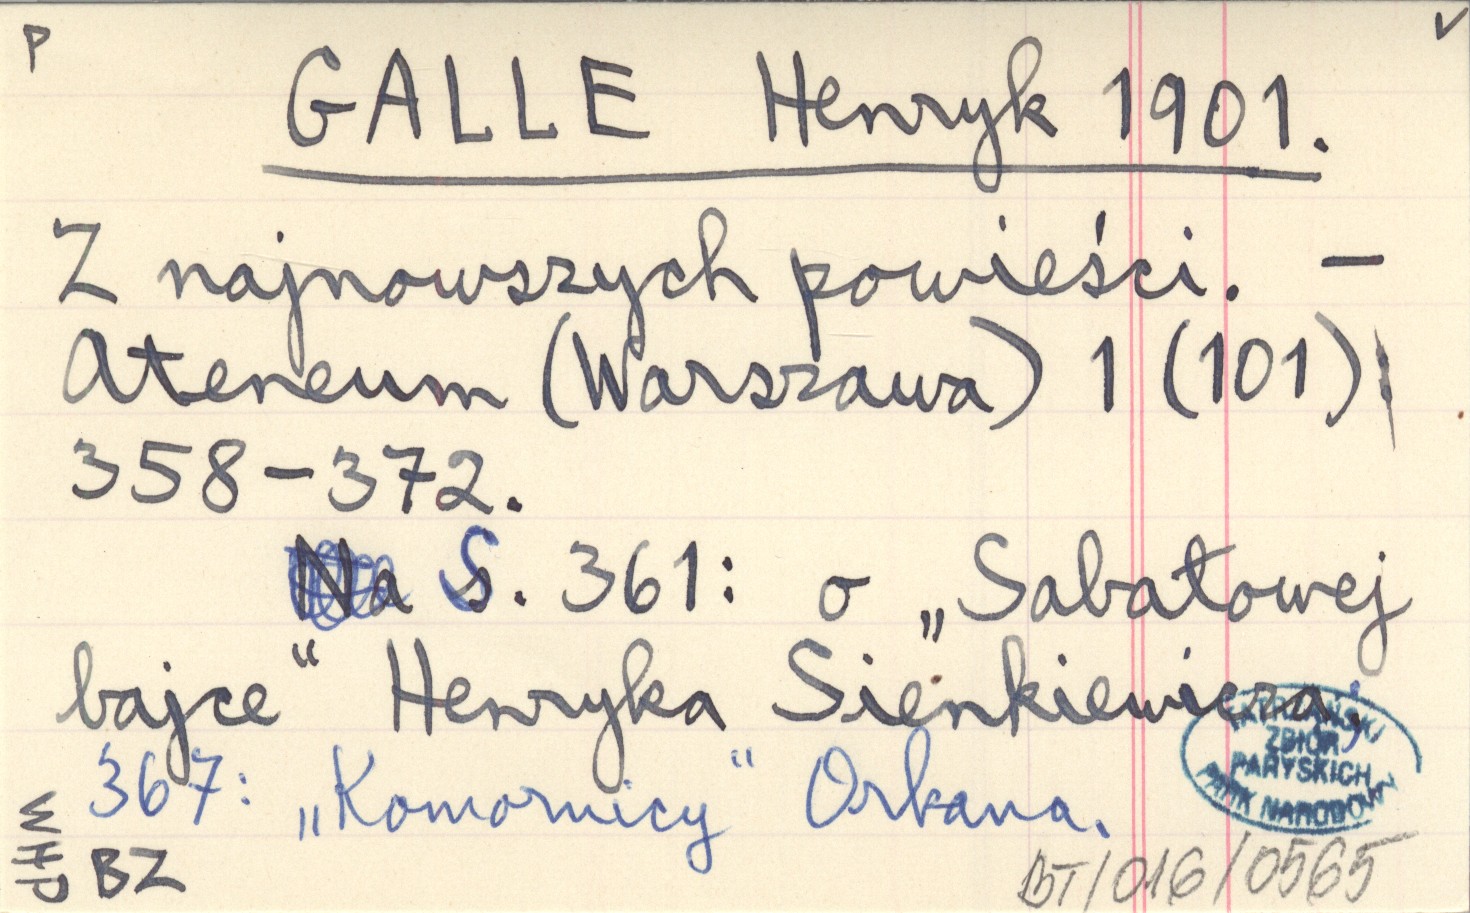 P V
GALLE Henryk 1901.
Z najnowszych powieści. –
Ateneum (Warszawa) 1 (101)
358–372.
S. 361: o „Sabałowej
bajce“ Henryka Sienkiewicza;
367: „Komornicy“ Orkana.
TATRZAŃSKI
ZBIÓR
PARYSKICH
PARK NARODOWY
WHP
BZ
BT/016/0565